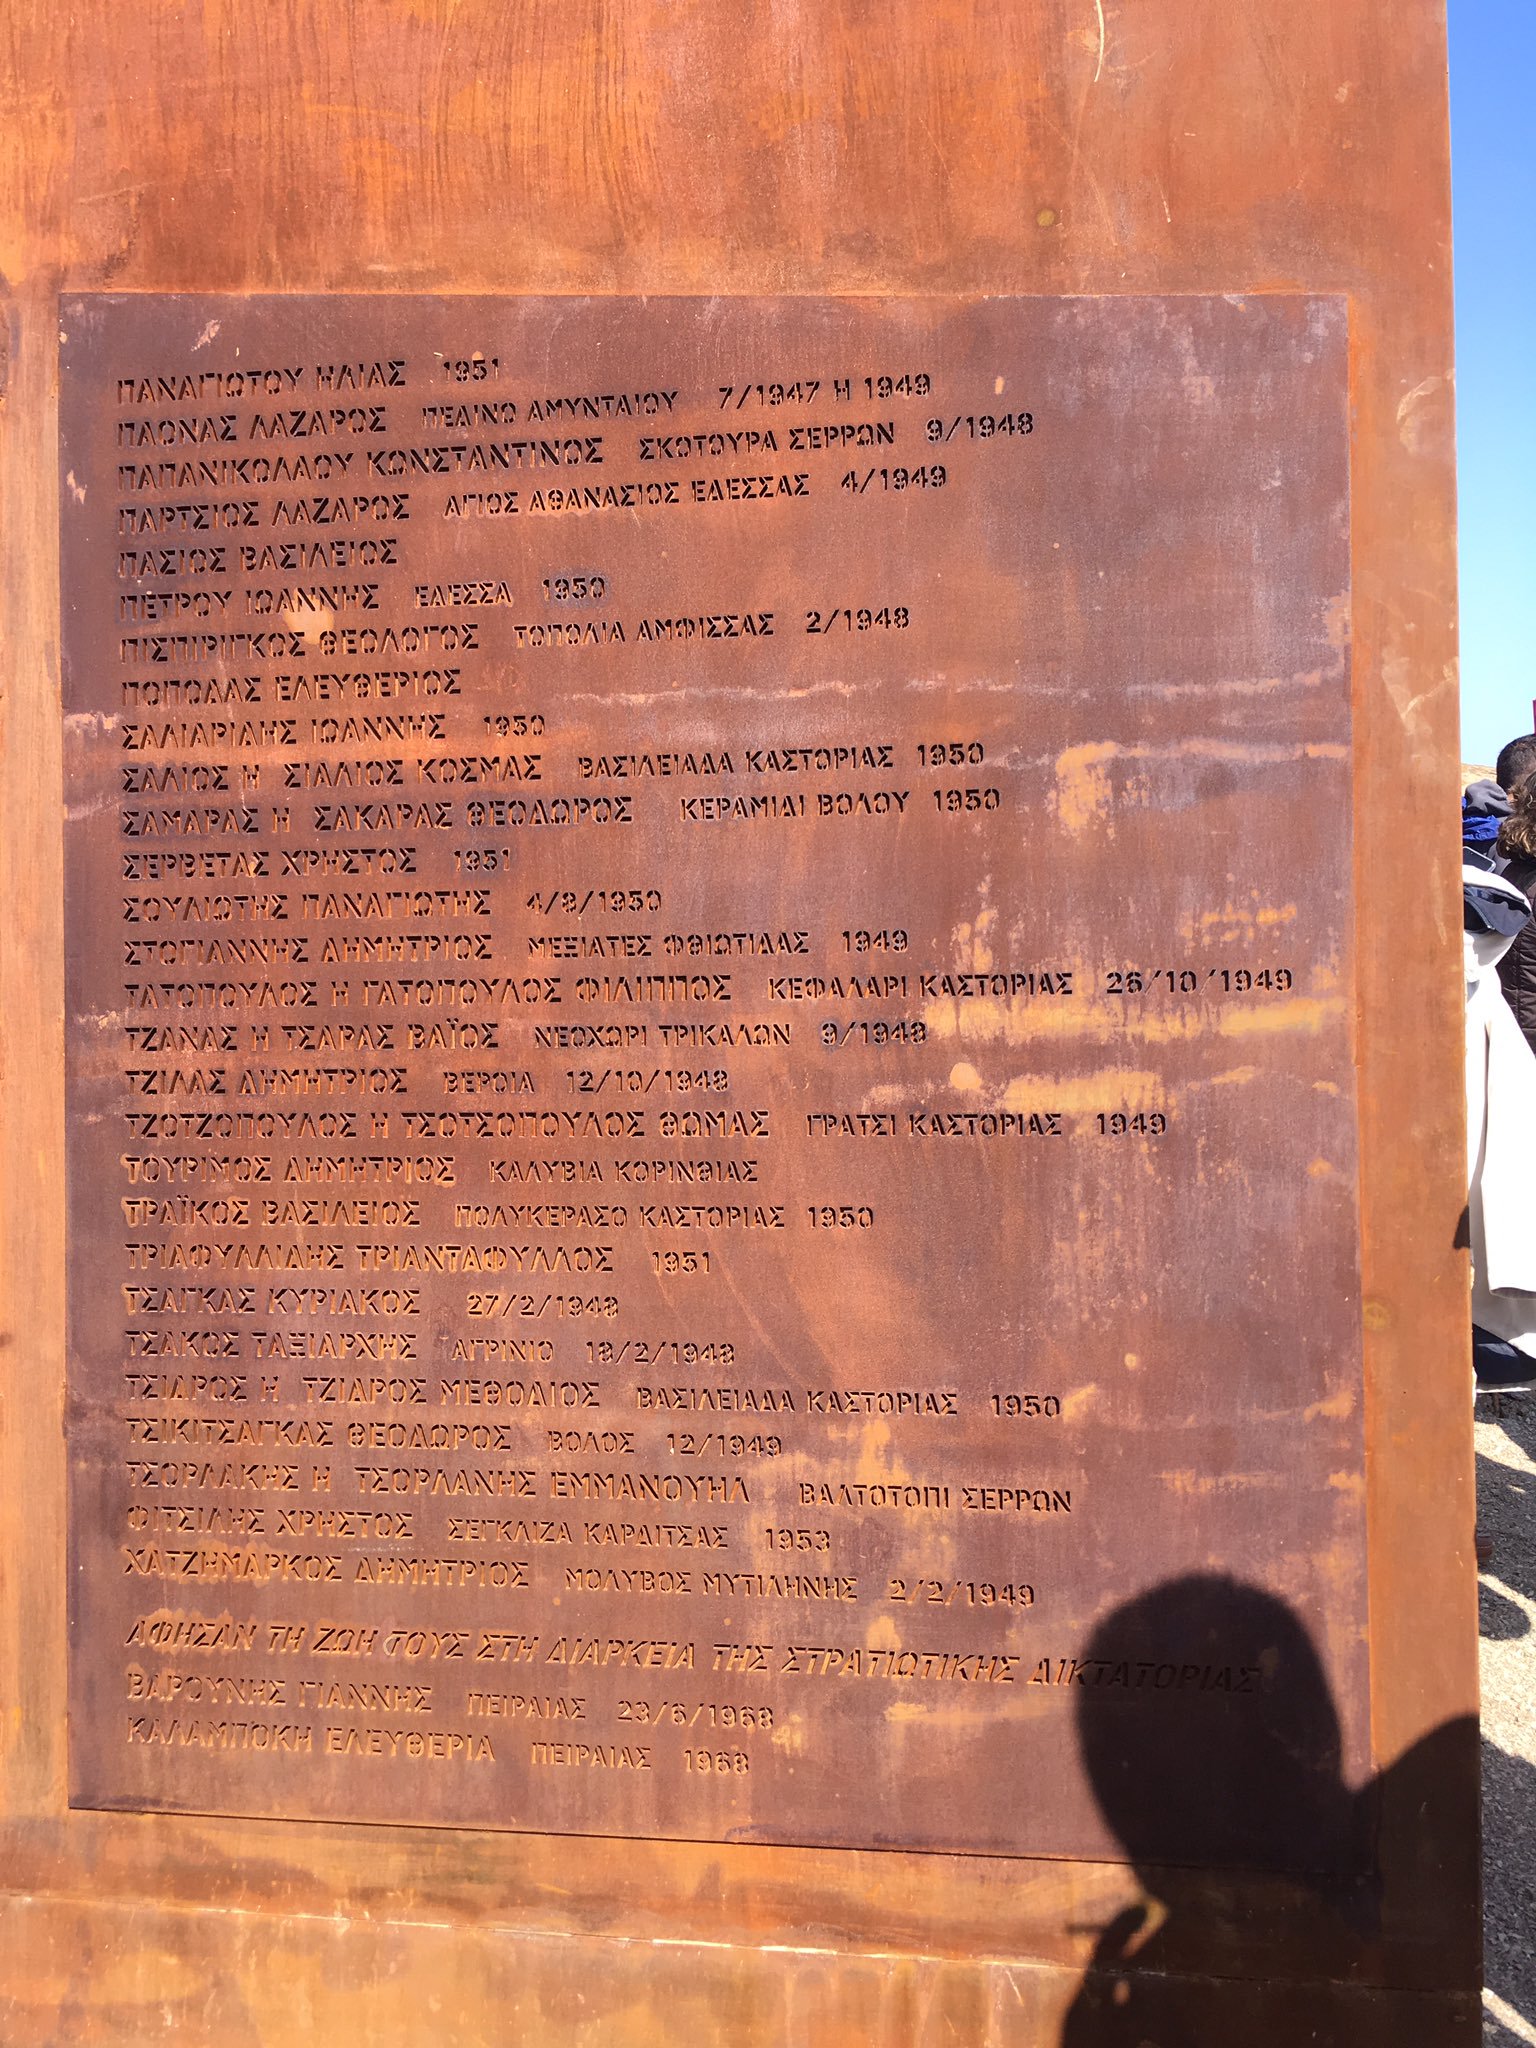 ΠΑΝΑΓΙΩΤΟΥ ΗΛΙΑΣ 1951
ΠΑΟΝΑΣ ΛΑΖΑΡΟΣ ΠΕΔΙΝΟ ΑΜΥΝΤΑΙΟΥ 7/1947 Η 1949
ΠΑΠΑΝΙΚΟΛΑΟΥ ΚΩΝΣΤΑΝΤΙΝΟΣ ΣΚΟΤΟΥΡΑ ΣΕΡΡΩΝ 9/1948
ΠΑΡΤΣΙΟΣ ΛΑΖΑΡΟΣ ΑΓΙΟΣ ΑΘΑΝΑΣΙΟΣ ΕΔΕΣΣΑΣ 4/1949
ΠΑΣΙΟΣ ΒΑΣΙΛΕΙΟΣ
ΠΕΤΡΟΥ ΙΩΑΝΝΗΣ ΕΔΕΣΣΑ 1950
ΠΙΣΠΙΡΙΓΚΟΣ ΘΕΟΛΟΓΟΣ ΤΟΠΟΛΙΑ ΑΜΦΙΣΣΑΣ 2/1948
ΠΟΠΟΔΑΣ ΕΛΕΥΘΕΡΙΟΣ
ΣΑΛΙΑΡΙΔΗΣ ΙΩΑΝΝΗΣ 1950
ΣΑΛΙΟΣ Η ΣΙΑΛΙΟΣ ΚΟΣΜΑΣ ΒΑΣΙΛΕΙΑΔΑ ΚΑΣΤΟΡΙΑΣ 1950
ΣΑΜΑΡΑΣ Η ΣΑΚΑΡΑΣ ΘΕΟΔΩΡΟΣ ΚΕΡΑΜΙΔΙ ΒΟΛΟΥ 1950
ΣΕΡΒΕΤΑΣ ΧΡΗΣΤΟΣ 1951
ΣΟΥΛΙΩΤΗΣ ΠΑΝΑΓΙΩΤΗΣ 4/8/1950
ΣΤΟΓΙΑΝΝΗΣ ΔΗΜΗΤΡΙΟΣ ΜΕΞΙΑΤΕΣ ΦΘΙΩΤΙΔΑΣ 1949
ΤΑΤΟΠΟΥΛΟΣ Η ΓΑΤΟΠΟΥΛΟΣ ΦΙΛΙΠΠΟΣ ΚΕΦΑΛΑΡΙ ΚΑΣΤΟΡΙΑΣ 26/10/1949
ΤΖΑΝΑΣ Η ΤΣΑΡΑΣ ΒΑΪΟΣ ΝΕΟΧΩΡΙ ΤΡΙΚΑΛΩΝ 9/1948
ΤΖΙΛΑΣ ΔΗΜΗΤΡΙΟΣ ΒΕΡΟΙΑ 12/10/1948
ΤΖΟΤΖΟΠΟΥΛΟΣ Η ΤΣΟΤΣΟΠΟΥΛΟΣ ΘΩΜΑΣ ΓΡΑΤΣΙ ΚΑΣΤΟΡΙΑΣ 1949
ΤΟΥΡΙΜΟΣ ΔΗΜΗΤΡΙΟΣ ΚΑΛΥΒΙΑ ΚΟΡΙΝΘΙΑΣ
ΤΡΑΪΚΟΣ ΒΑΣΙΛΕΙΟΣ ΠΟΛΥΚΕΡΑΣΟ ΚΑΣΤΟΡΙΑΣ 1950
ΤΡΙΑΦΥΛΛΙΔΗΣ ΤΡΙΑΝΤΑΦΥΛΛΟΣ 1951
ΤΣΑΓΚΑΣ ΚΥΡΙΑΚΟΣ 27/2/1948
ΤΣΑΚΟΣ ΤΑΞΙΑΡΧΗΣ ΑΓΡΙΝΙΟ 18/2/1948
ΤΣΙΔΡΟΣ Η ΤΖΙΔΡΟΣ ΜΕΘΟΔΙΟΣ ΒΑΣΙΛΕΙΑΔΑ ΚΑΣΤΟΡΙΑΣ 1950
ΤΣΙΚΙΤΣΑΓΚΑΣ ΘΕΟΔΩΡΟΣ ΒΟΛΟΣ 12/1949
ΤΣΟΡΛΑΚΗΣ Η ΤΣΟΡΛΑΝΗΣ ΕΜΜΑΝΟΥΗΛ ΒΑΛΤΟΤΟΠΙ ΣΕΡΡΩΝ
ΦΙΤΣΙΛΗΣ ΧΡΗΣΤΟΣ ΣΕΓΚΛΙΖΑ ΚΑΡΔΙΤΣΑΣ 1953
ΧΑΤΖΗΜΑΡΚΟΣ ΔΗΜΗΤΡΙΟΣ ΜΟΛΥΒΟΣ ΜΥΤΙΛΗΝΗΣ 2/2/1949
ΑΦΗΣΑΝ ΤΗ ΖΩΗ ΤΟΥΣ ΣΤΗ ΔΙΑΡΚΕΙΑ ΤΗΣ ΣΤΡΑΤΙΩΤΙΚΗΣ ΔΙΚΤΑΤΟΡΙΑΣ
ΒΑΡΟΥΝΗΣ ΓΙΑΝΝΗΣ ΠΕΙΡΑΙΑΣ 23/6/1968
ΚΑΛΑΜΠΟΚΗ ΕΛΕΥΘΕΡΙΑ ΠΕΙΡΑΙΑΣ 1968